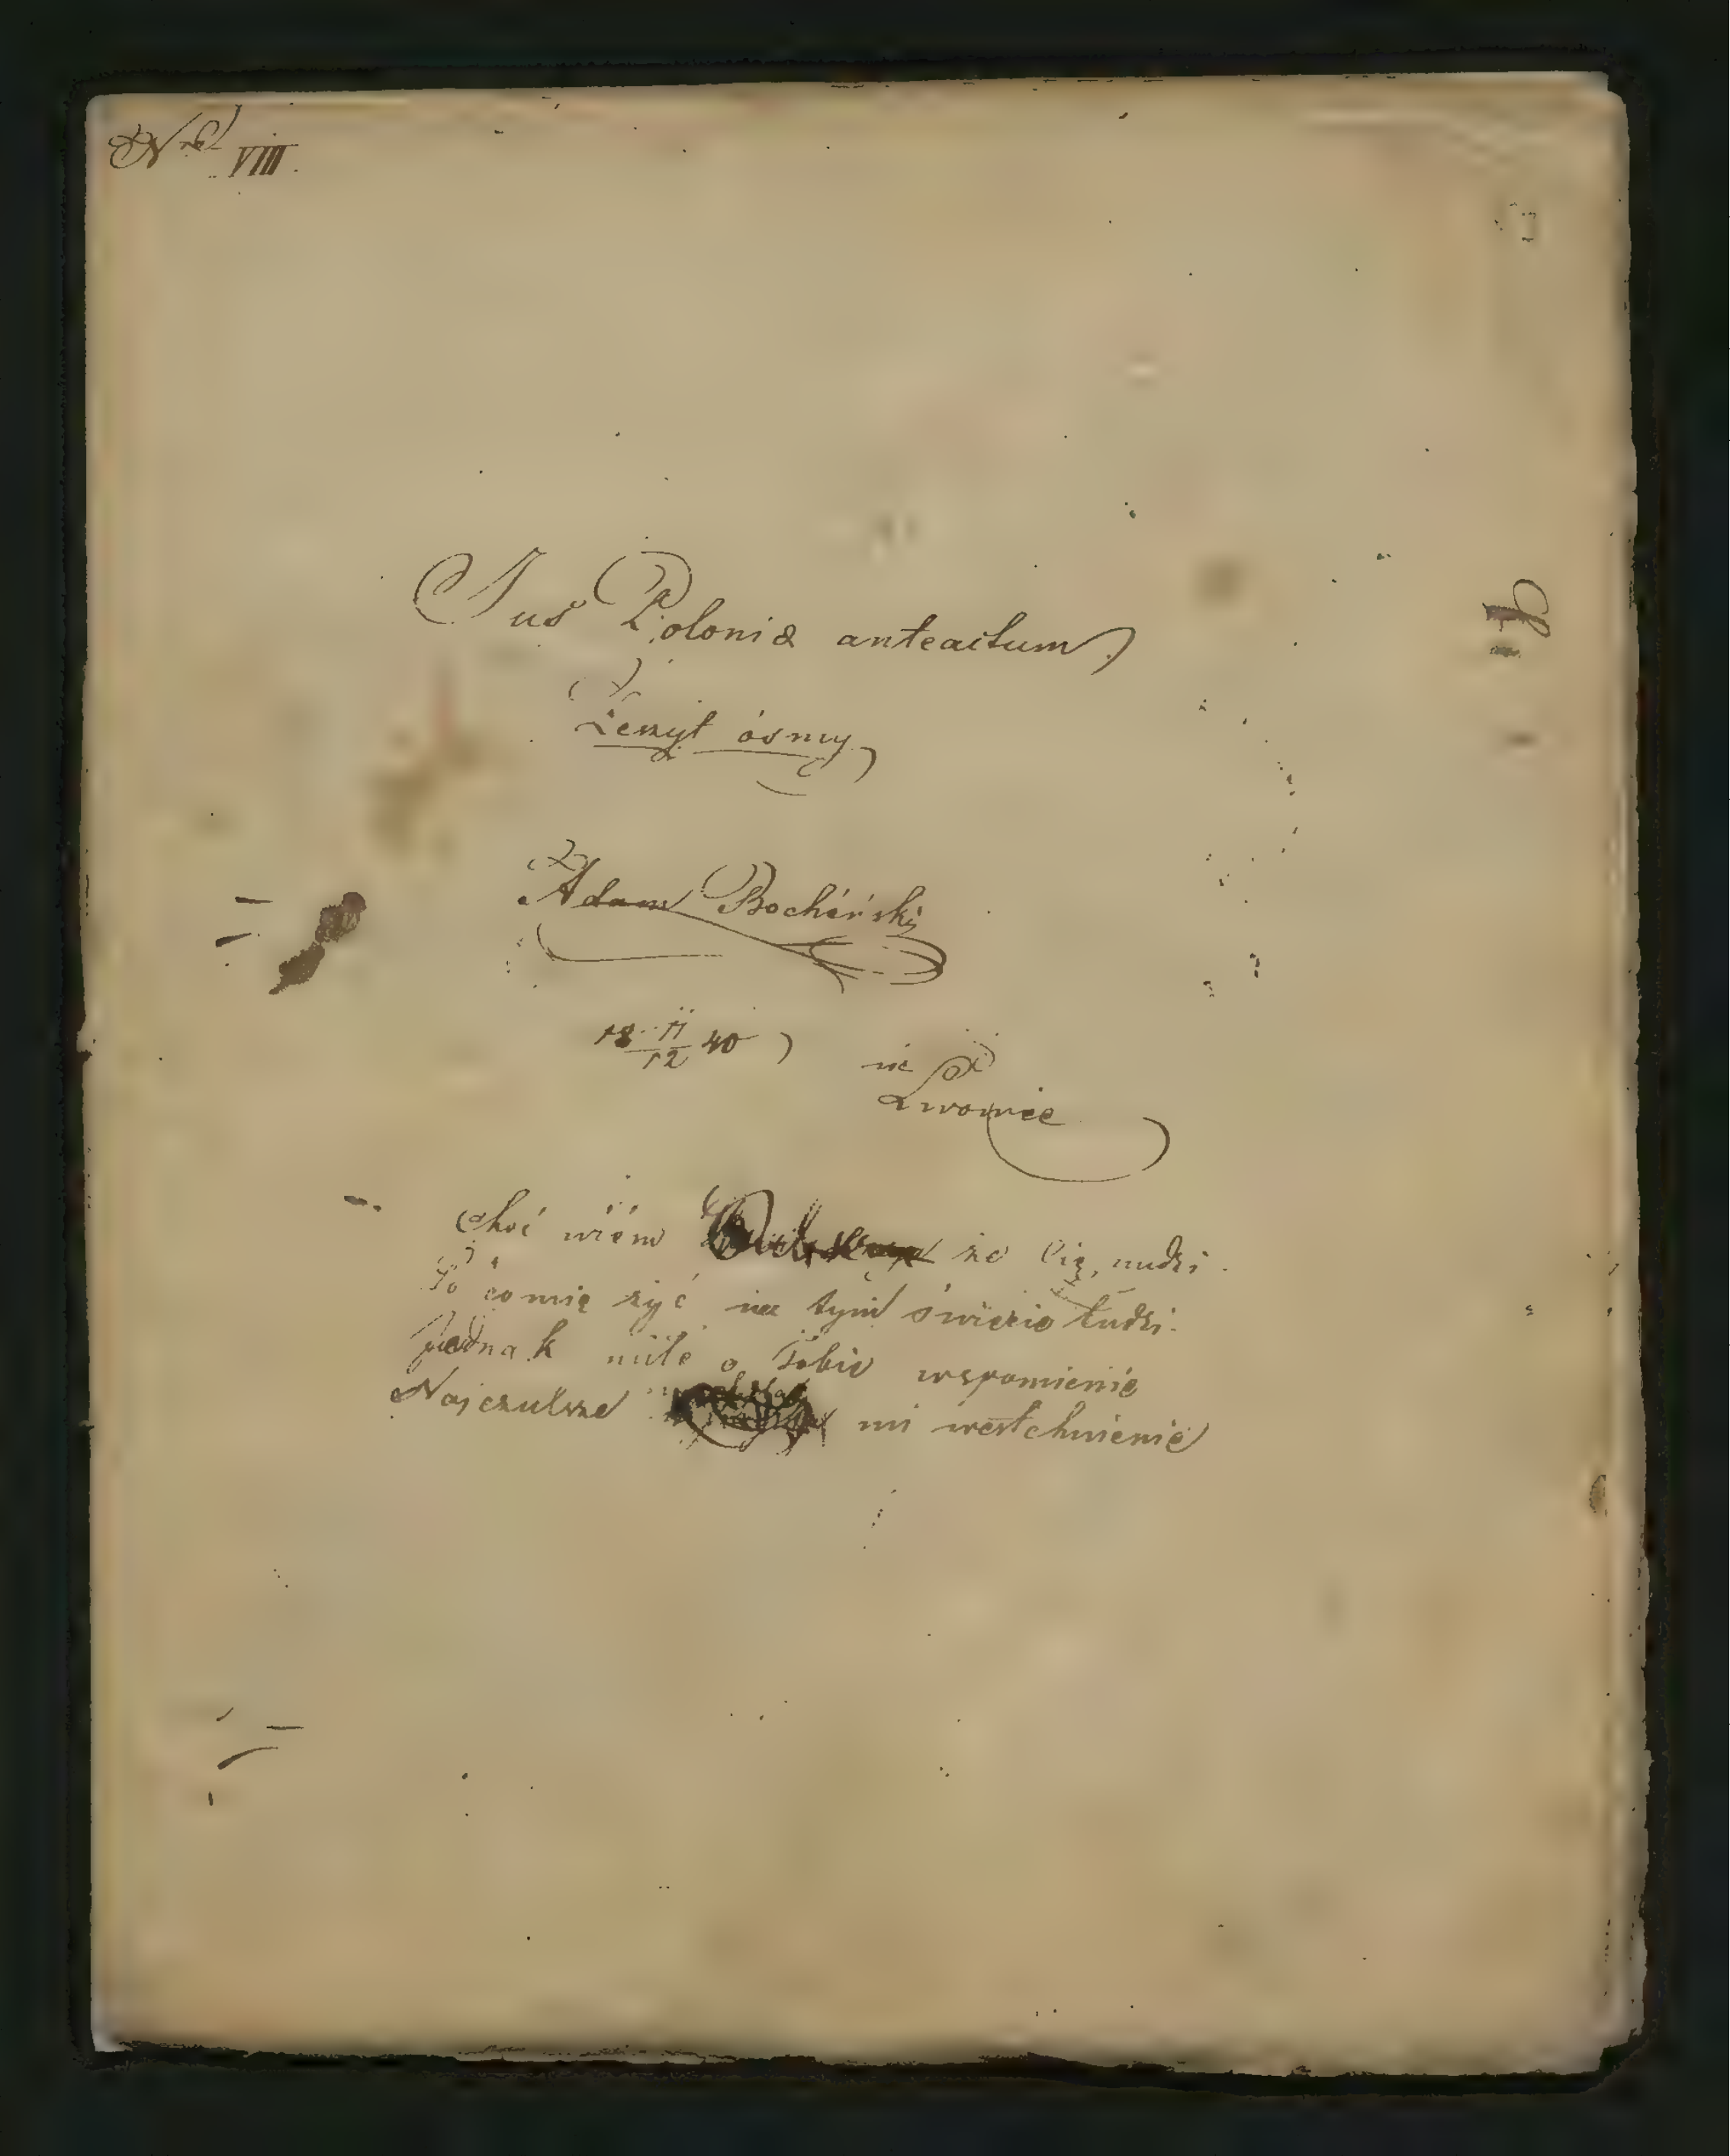 Nro VIII.
Jus Poloniæ anteactum
Zeszyt ósmy
Adam Bocheński
18 11/12 40
we
Lwowie
Choć wiém że Cię nudzi.
To co mię żyć na tym świecie łudzi.
Jednak miłe o Tobie wspomienie
Najczulsze mi westchnienie